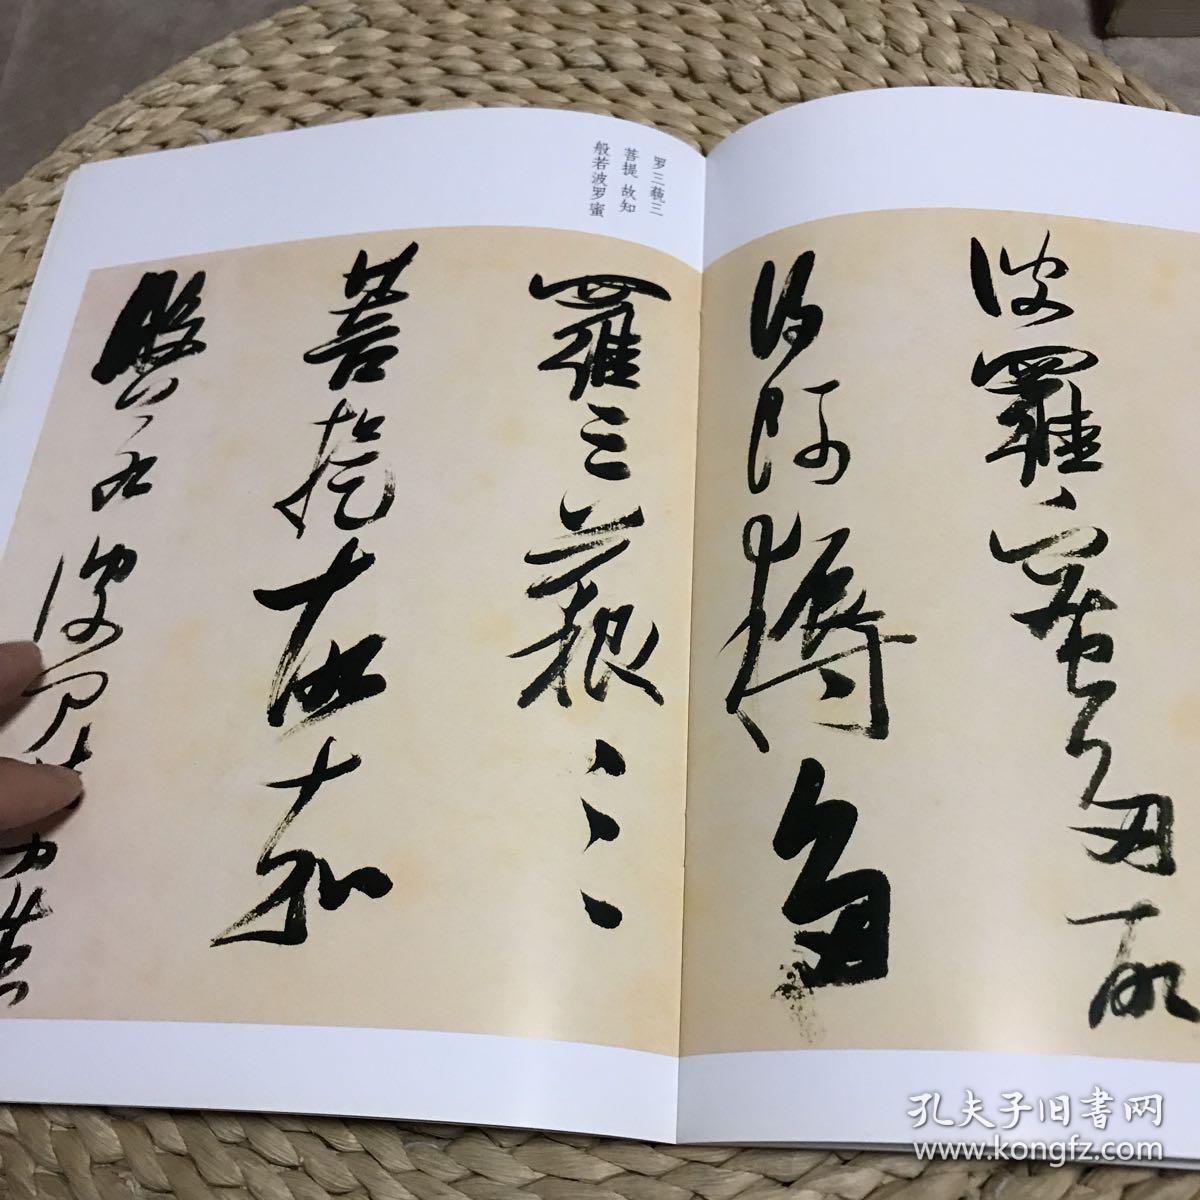 罗三藐三
菩提 故知
般若波罗蜜
波羅蜜多故
得阿耨多
羅三藐三
菩提故知
般若波羅蜜
孔夫子旧書网
www.kongfz.com